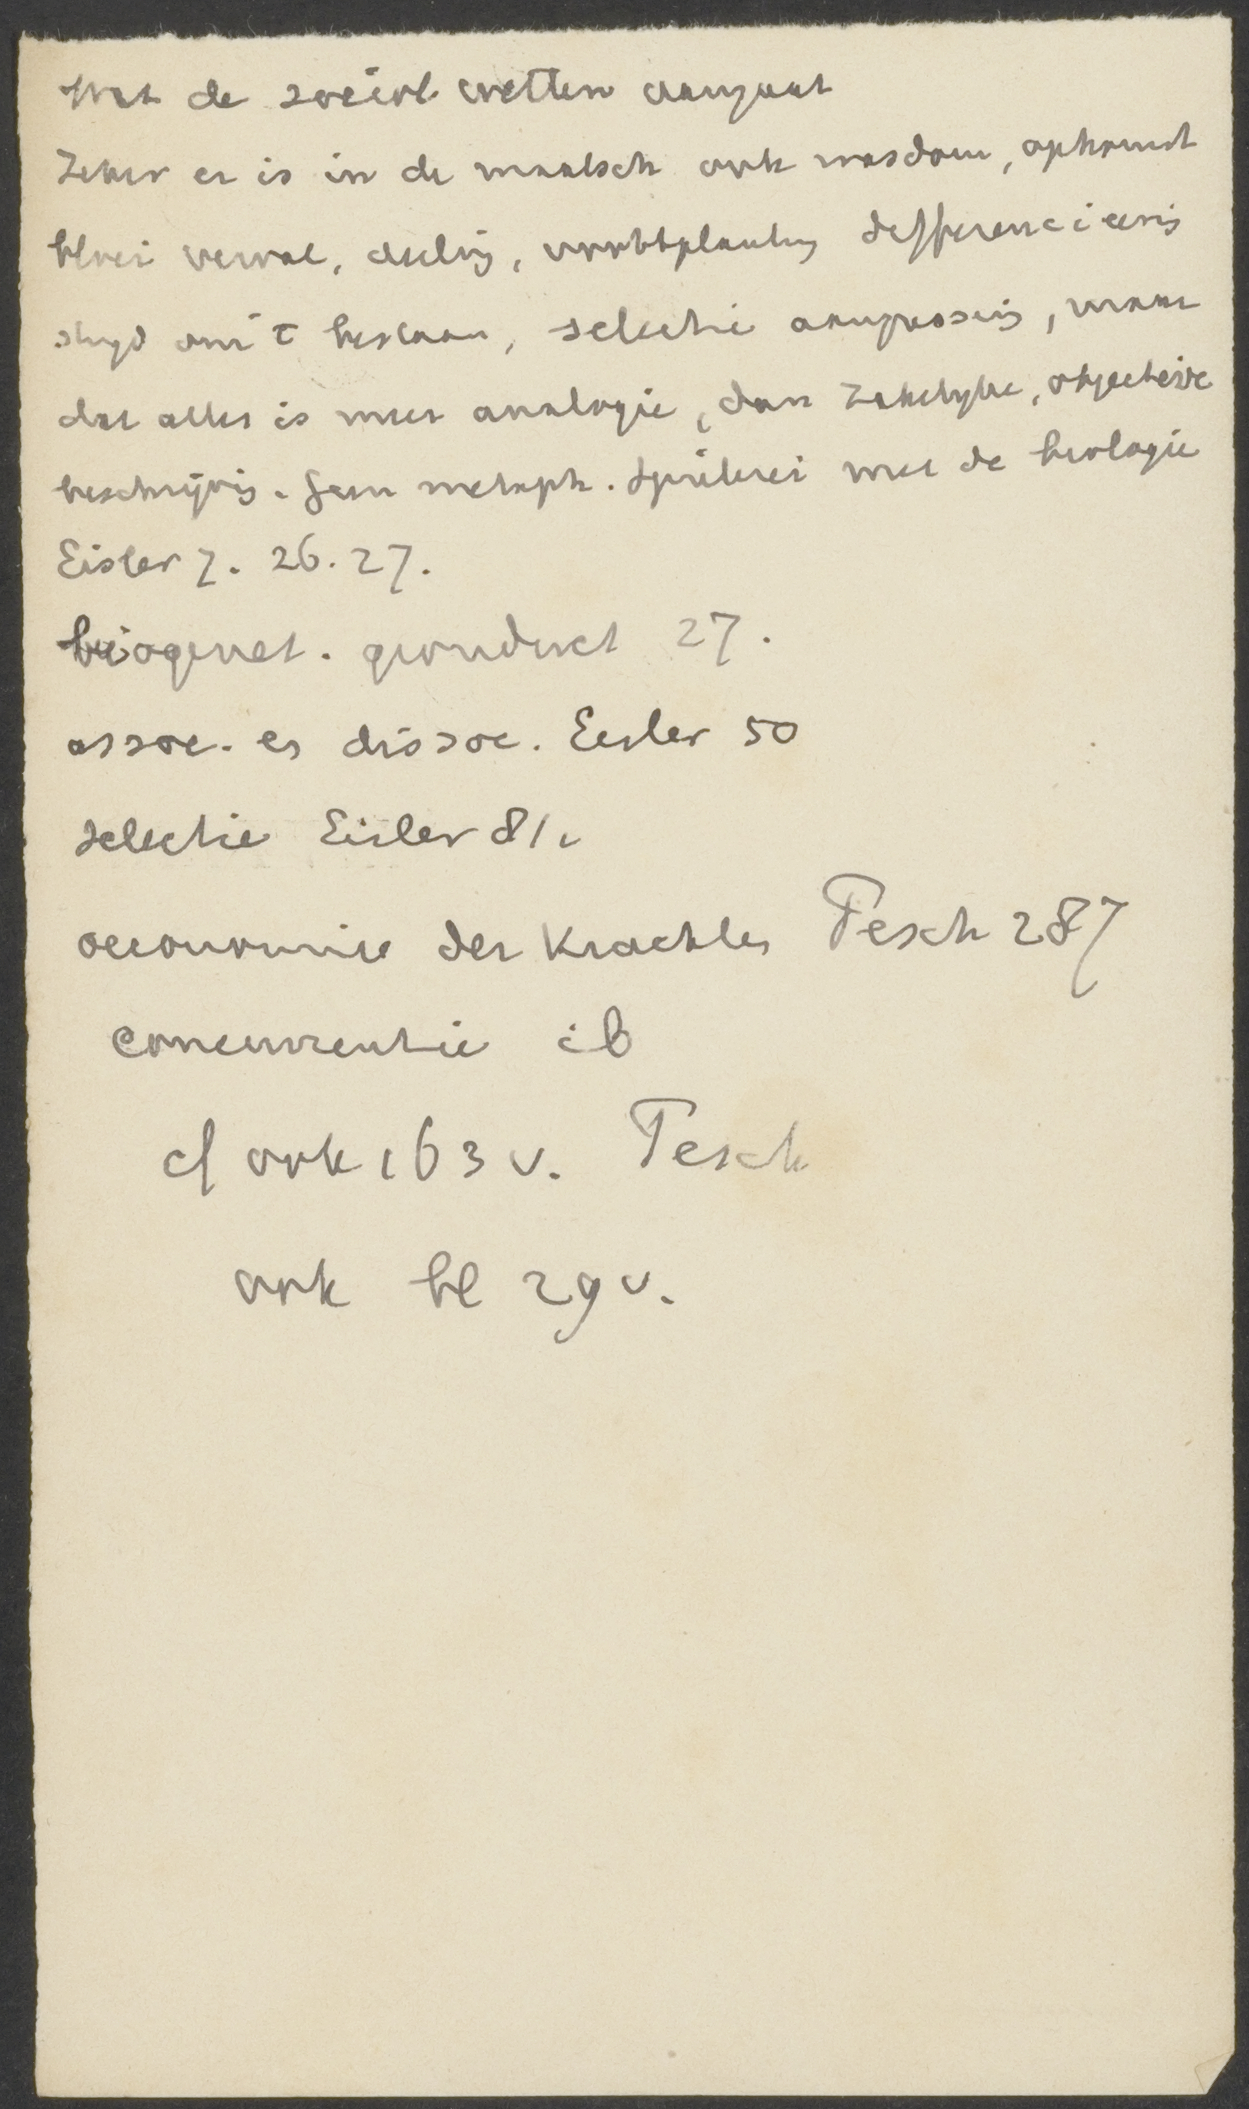 Wat de sociol. wetten aangaat
Zeker er is in de maatsch ook wasdom, opkomst
bloei verval, deeling, voortplanting differencieering
strijd om t bestaan, selectie aanpassing, maar
dat alles is meer analogie, dan zakelyke, objectieve
beschrijving. Geen metaph. Spielerei met de biologie
Eisler 7. 26. 27.
biogenet. grondwet 27.
assoc. en dissoc. Eisler 50
selectie Eisler 81.
oeconomie der Krachten Pesch 287
concurrentie ib
cf ook 163 v. Pesch
ook bl 29 v.